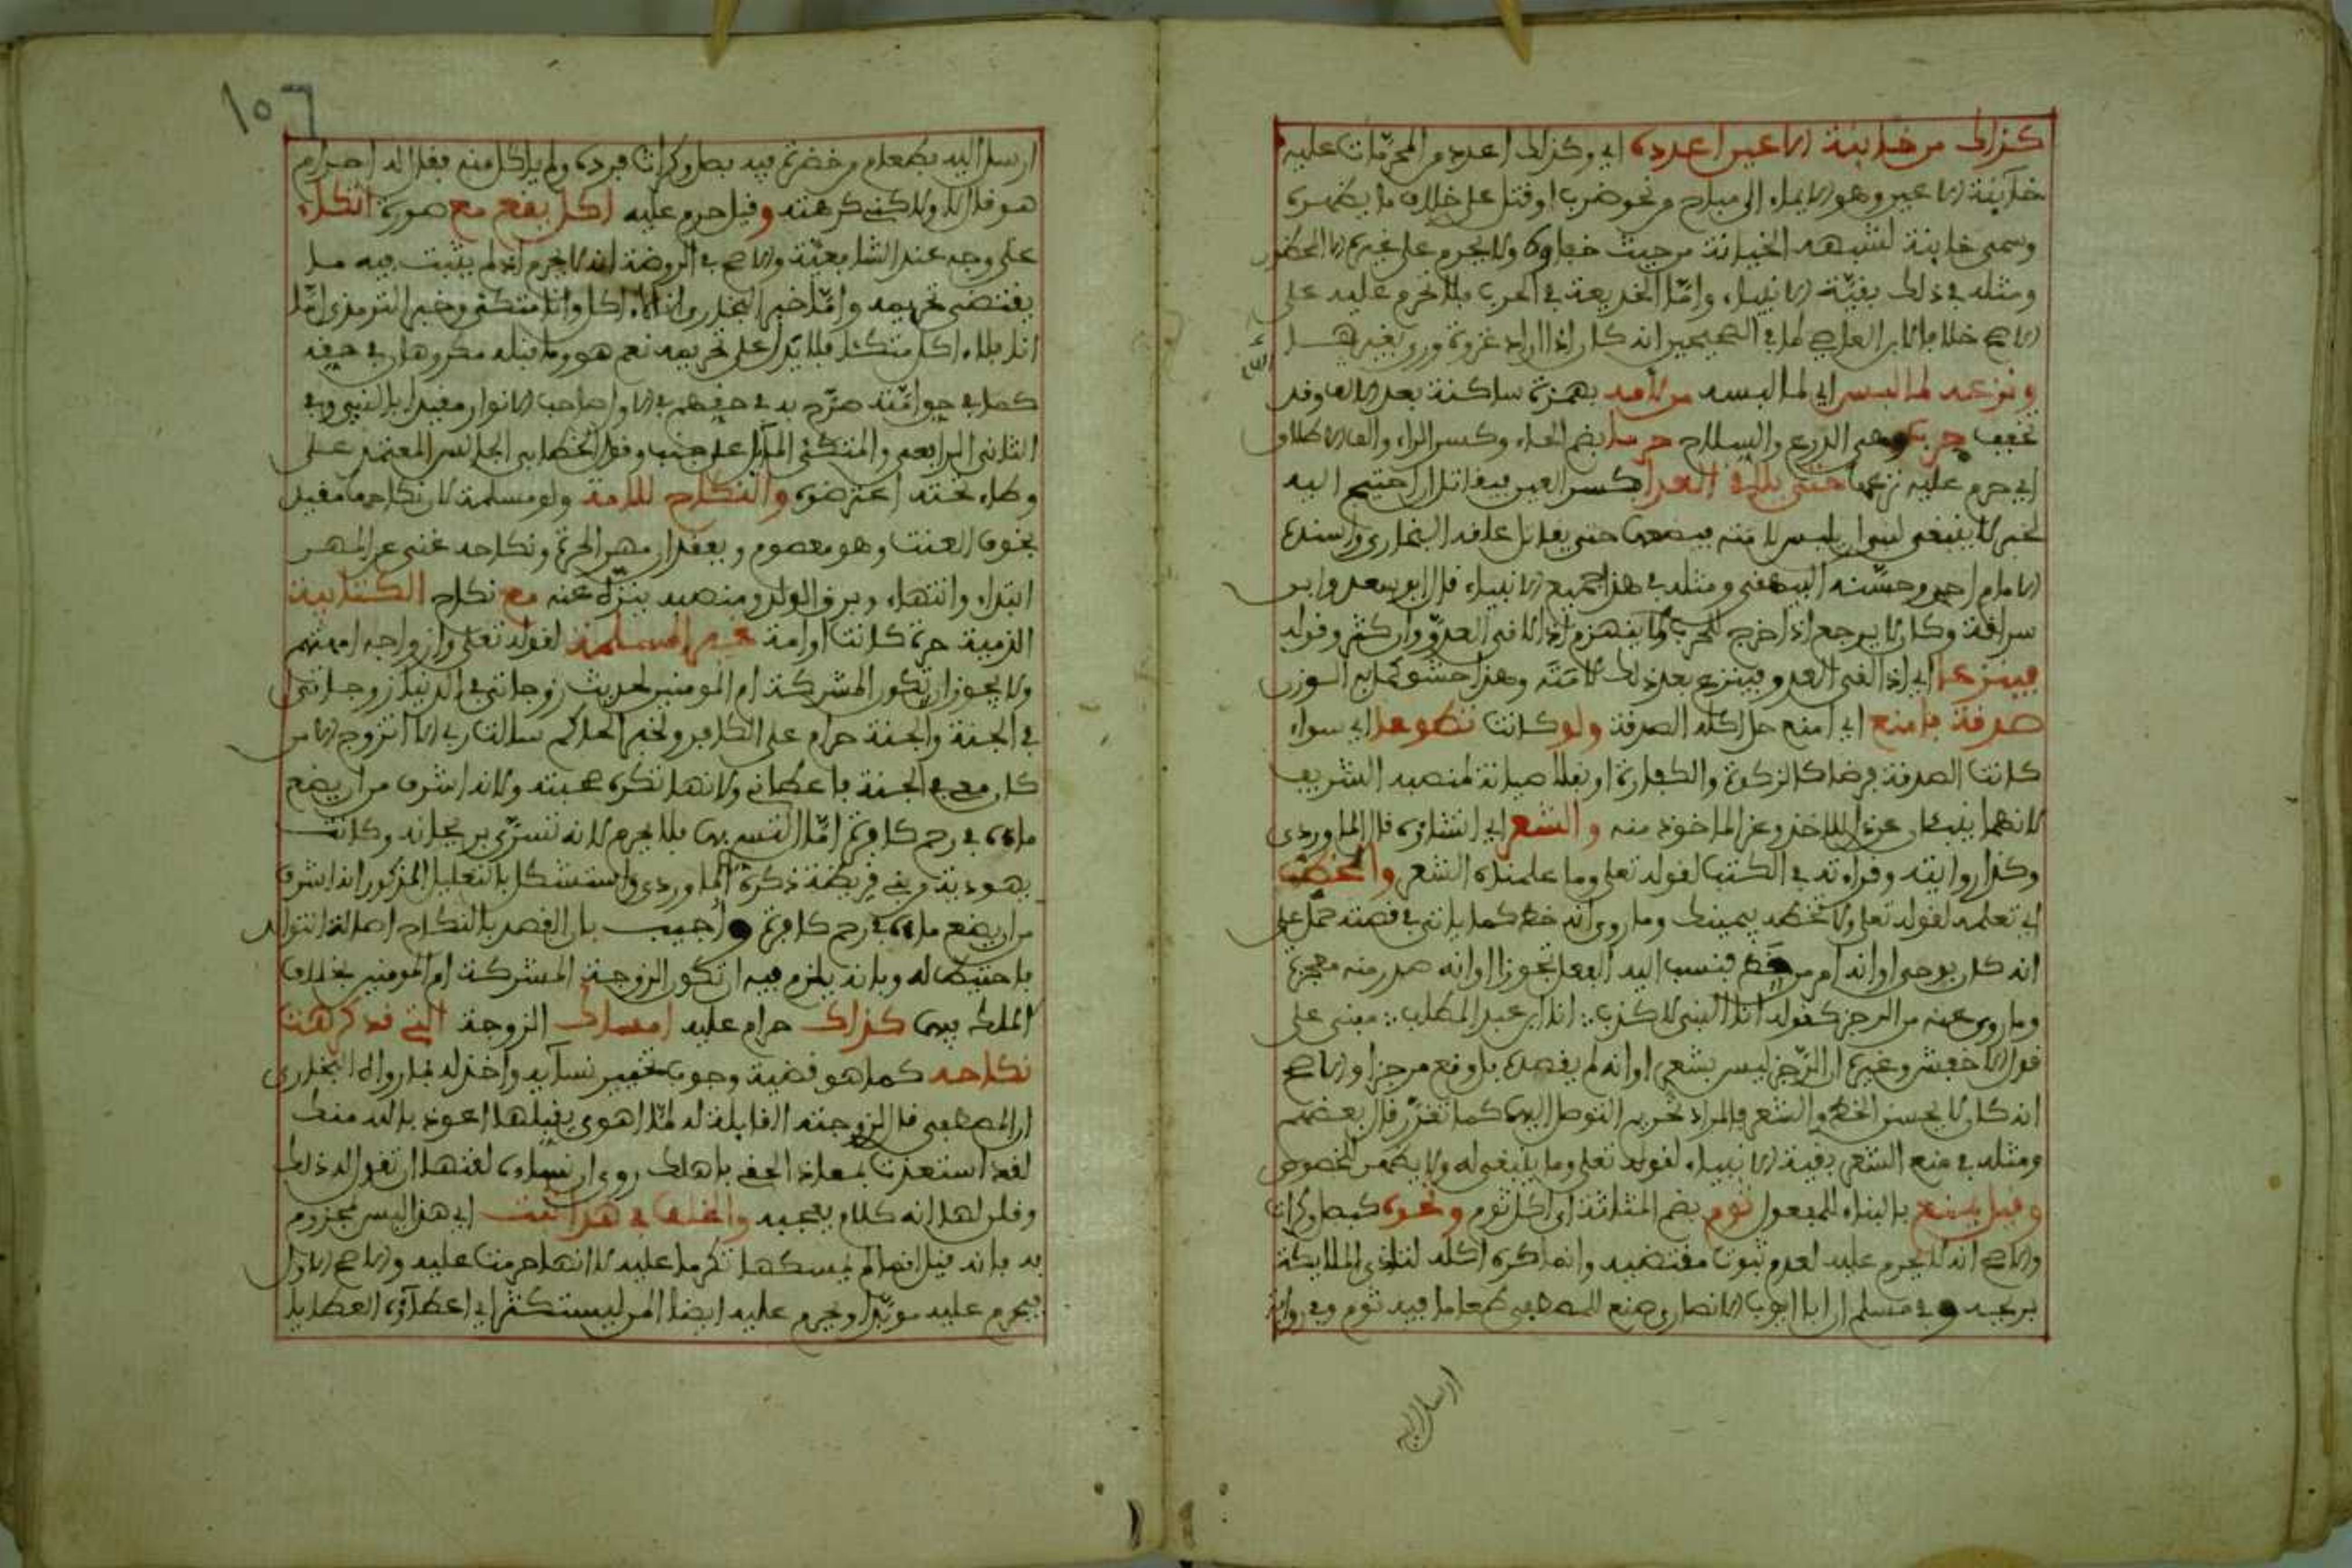 كذاك من خائنة الاعين اعدده اي وكذلك اعدد من المحرمات عليه
خائنة الاعين وهو الايماء الى مباح من نحو ضرب او قتل على خلاف ما يظهره
وسمي خائنة لشبهه الخيانة من حيث خفاؤه ولا يحرم على غيره الا المحظور
ومثله في ذلك بقية الانبياء وامّا الخديعة في الحرب فلا تحرم عليه على
الاصح خلافا لابن القاص لما في الصحيحين انه كان اذا اراد غزوة ورى بغيرها
ونزعه لما لبس اي لما لبسه من لامه بهمزة ساكنة بعد الالف وقد
تخفف حربه وهي الدرع والسلاح حرما بضم الحاء وكسر الراء والف الاطلاق
اي حرم عليه نزعها حتى يلاقي العدا بكسر العين فيقاتل ان احتيج اليه
لخبر لا ينبغي لنبي ان يلبس لامته فيضعها حتى يقاتل علقه البخاري واسنده
الامام احمد وحسّنه البيهقي ومثله في هذا جميع الانبياء قال ابو سعد وابن
سراقة وكان لا يرجع اذا خرج للحرب ولا ينهزم اذا لاقى العدوّ وان كثر وقوله
فينزعا اي اذا لقي العدو فينزع بعد ذلك لامته وهذا حشو كمل به الوزن
صدقة فامنع اي امنع حل اكله الصدقة ولو كانت تطوعا اي سواء
كانت الصدقة فرضا كالزكوة والكفارة او نفلا صيانة لمنصبه الشريف
لانهما ينبئان عن ذل الاخذ وعز الماخوذ منه والشعر اي انشاؤه قال الماوردي
وكذا روايته وقراءته في الكتب لقوله تعلى وما علمناه الشعر والخط
اي تعلمه لقوله تعلى ولا تخطه بيمينك وما روي انه خط كما ياتي في قصته حمل على
انه كان بوحي او انه امر من خط فنسب اليه الفعل تجوزا او انه صدر منه معجزة
وما روي عنه من الرجز كقوله انا النبي لا كذب ∴ انا ابن عبد المطلب ∴ مبني على
قول الاخفش وغيره ان الرّجز ليس بشعر او انه لم يقصده بل وقع مرجزا والاصح
انه كان لا يحسن الخط والشعر فالمراد تحريم التوصل اليهما كما تقرّر قال بعضهم
ومثله في منع الشعر بقية الانبياء لقوله تعلى وما ينبغي له ولا يظهر الخصوص
وقيل يمنع بالبناء للمفعول ثوم بضم المثلثة اي اكل ثوم ونحوه كبصل وكراث
والاصح انه لا يحرم عليه لعدم ثبوت مقتضيه وانما كره اكله لتاذي الملايكة
بريحه وفي مسلم ان ابا ايوب الانصاري صنع للمصطفى طعاما فيه ثوم وفي رواية
ارسل اليه
١٥٦
ارسل اليه بطعام من خضرة فيه بصل وكراث فرده ولم ياكل منه فقال له احرام
هو قال لا ولاكني كرهته وقيل حرم عليه اكل يقع مع صورة اتكاء
على وجه عند الشافعيّة والاصح في الروضة انه لا يحرم اذ لم يثبت فيه ما
يقتضي تحريمه وامّا خبر البخاري انا لا اكل وانا متكئ وخبر الترمذي امّا
انا فلا اكل متكئا فلا يدل على تحريمه نعم هو وما قبله مكروهان في حقه
كما في حق امّته صرّح به في حقهم في الاول صاحب الانوار مقيدا بالنيي وفي
الثاني الرافعي والمتكئ المائل على جنب وقول الخطابي الجالس المعتمد على
وطاء تحته اعترضوه والنكاح للامة ولو مسلمة لان نكاحها مقيد
بخوف العنت وهو معصوم وبفقدان مهر الحرة ونكاحه غني عن المهر
ابتداء وانتهاء وبرق الولد ومنصبه ينزه عنه مع نكاح الكتابية
الذمية حرة كانت او امة غير المسلمة لقوله تعلى وازواجه امهتهم
ولا يجوز ان تكون المشركة ام المومنين لحديث زوجاتي في الدنيا زوجاتي
في الجنة والجنة حرام على الكافر ولخبر الحاكم سالت ربي الا اتزوج الا من
كان معي في الجنة فاعطاني ولانها تكره صحبته ولانه اشرف من ان يضع
ماءه في رحم كافرة امّا التسري بها فلا يحرم لانه تسرّى بريحانه وكانت
يهودية من بني قريظة ذكره الماوردي واستشكل بالتعليل المذكور انه اشرف
من ان يضع ماءه في رحم كافرة واجيب بان القصد بالنكاح اصالة التوالد
فاحتيط له وبانه يلزم فيه ان تكون الزوجة المشركة ام المومنين بخلاف
الملك فيها كذاك حرام عليه امساك الزوجة التي قد كرهت
نكاحه كما هو قضية وجوب تخيير نسائه واخذ له بما رواه البخاري
ان المصطفى قال لزوجته القائلة له لمّا اهوى يقبلها اعوذ بالله منك
لقد استعذت بمعاذ الحقي باهلك روي ان نساءه لقنها ان تقول له ذلك
وقلن لها انه كلام يعجبه والخلف في هذا ثبت اي هذا ليس بمجزوم
به فانه قيل انما لم يمسكها تكرما عليه لا انها حرمت عليه والاصح الاول
فيحرم عليه موبّدا ويحرم عليه ايضا المن ليستكثر اي اعطاؤه العطايا